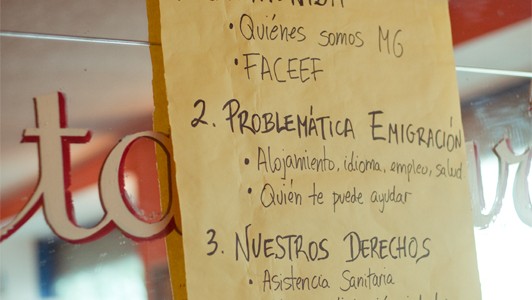 • Quiénes somos MG
• FACEEF
2. PROBLEMÁTICA EMIGRACIÓN
• Alojamiento, idioma, empleo, salud
• Quién te puede ayudar
3. NUESTROS DERECHOS
• Asistencia Sanitaria
ta